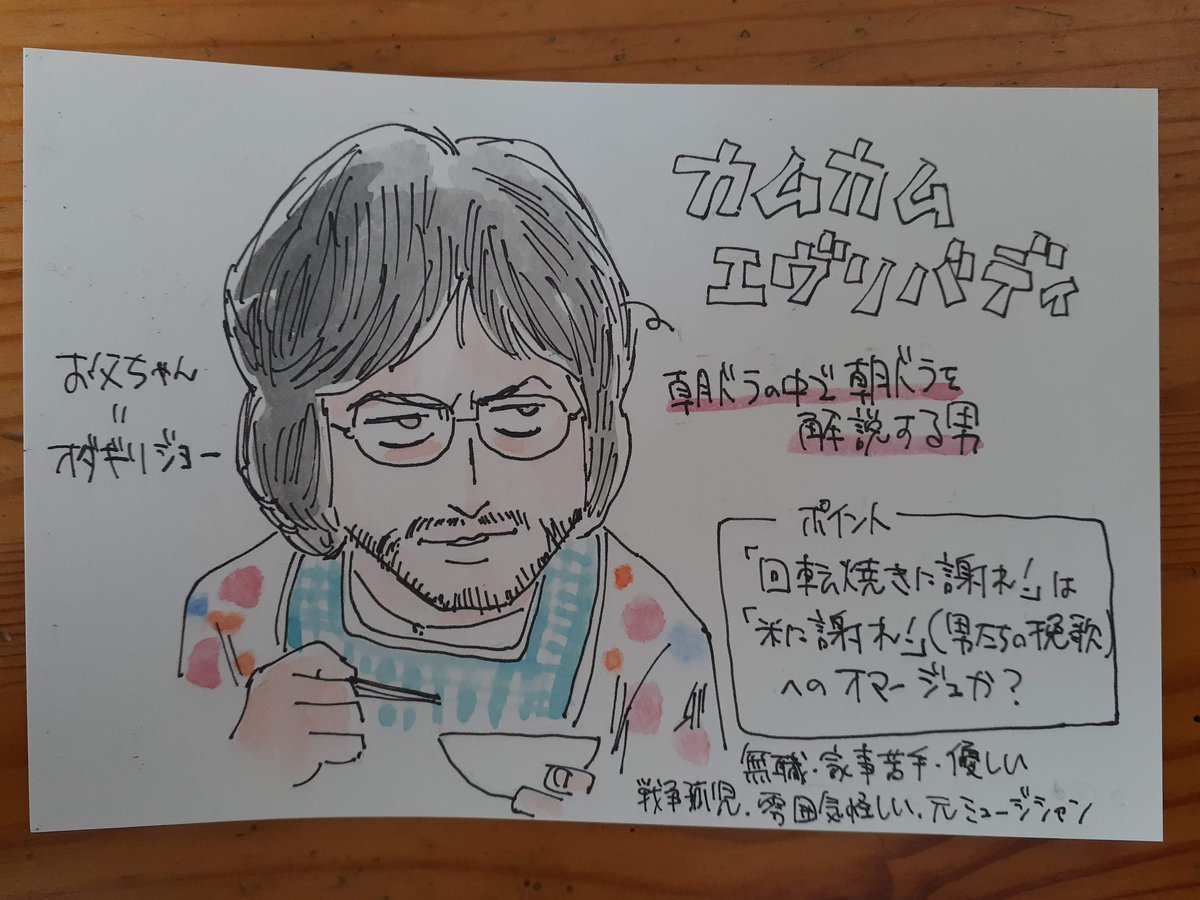 カムカム
エヴリバディ
お父ちゃん
〃
オダギリジョー
朝ドラの中で朝ドラを
解説する男
ポイント
「回転焼きに謝れ!」は
「米に謝れ!」(男たちの挽歌)
へのオマージュか?
無職・家事苦手・優しい
戦争孤児・雰囲気怪しい、元ミュージシャン